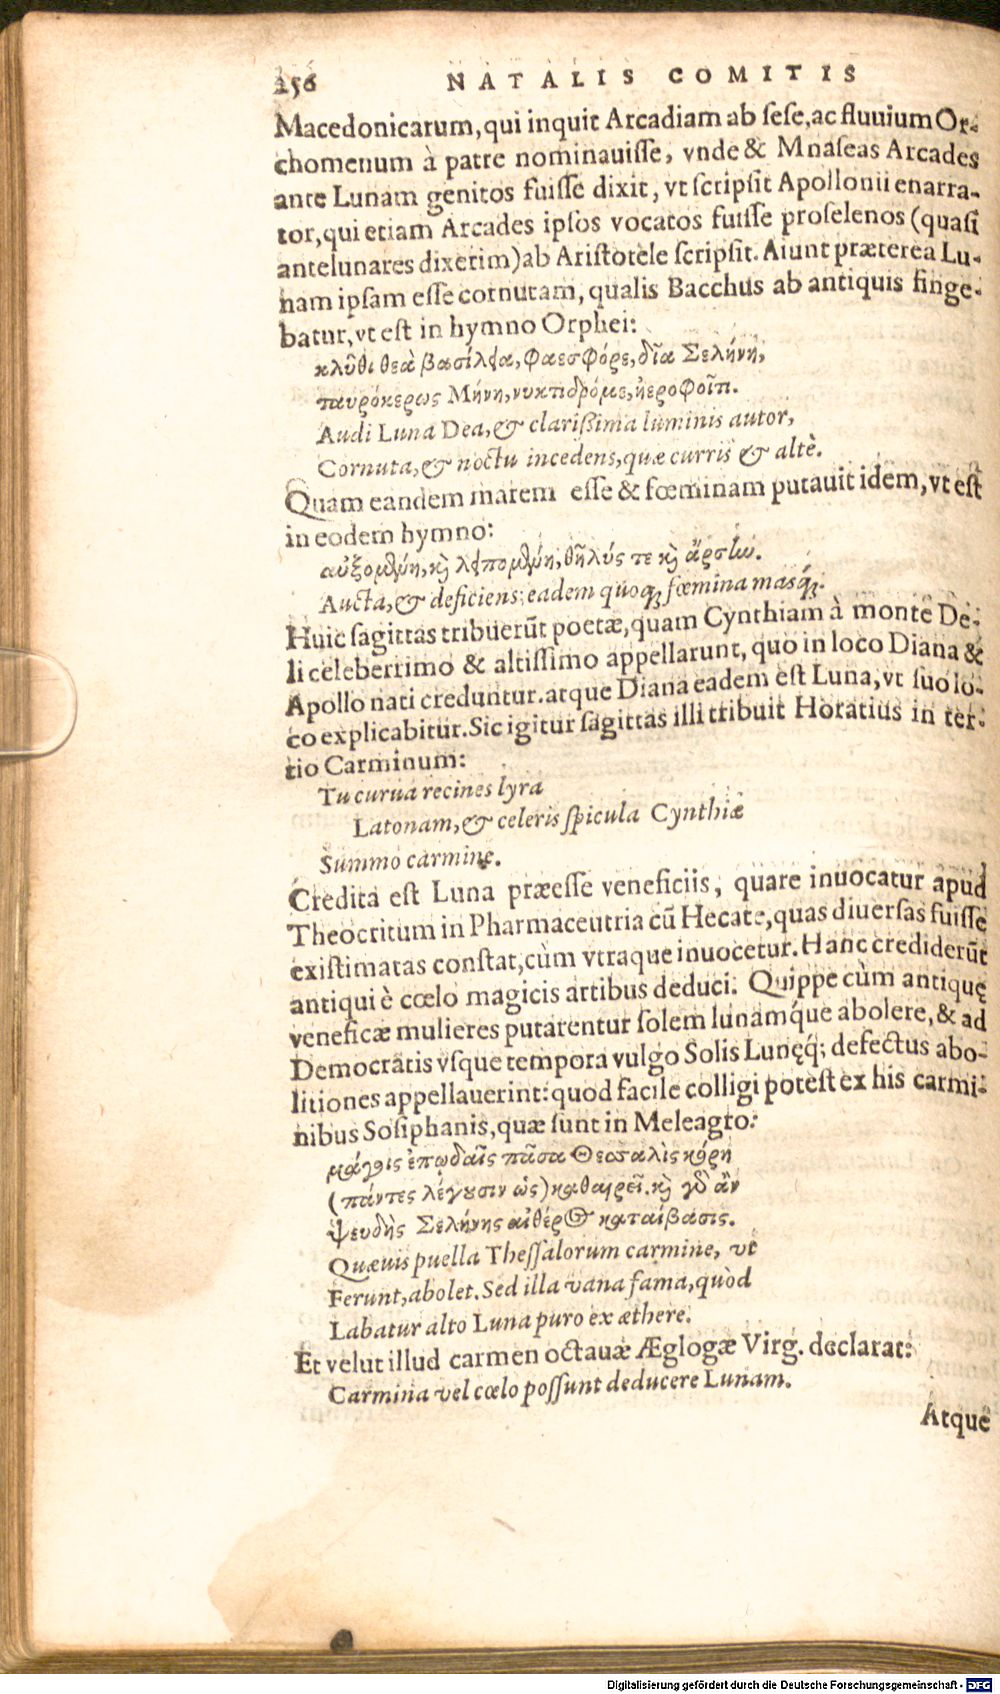 256 NATALIS COMITIS
Macedonicarum, qui inquit Arcadiam ab ſeſe, ac fluuium Or-
chomenum à patre nominauiſſe, vnde & Mnaſeas Arcades
ante Lunam genitos fuiſſe dixit, vt ſcripſit Apollonii enarra-
tor, qui etiam Arcades ipſos vocatos fuiſſe proſelenos (quaſi
antelunares dixerim) ab Ariſtotele ſcripſit. Aiunt præterea Lu-
nam ipſam eſſe cornutam, qualis Bacchus ab antiquis finge-
batur, vt eſt in hymno Orphei:
κλῦθι θεὰ βασίλεια, φαεσφόρε, δῖα Σελήνη,
ταυρόκερως Μήνη, νυκτιδρόμε, ἠεροφοῖτι.
Audi Luna Dea, & clariſſima luminis autor,
Cornuta, & noctu incedens, quæ curris & altè.
Quam eandem marem eſſe & fœminam putauit idem, vt eſt
in eodem hymno:
αὐξομένη, καὶ λειπομένη, θῆλύς τε καὶ ἄρσην.
Aucta, & deficiens: eadem quoq; fœmina masq́;.
Huic ſagittas tribuerūt poetæ, quam Cynthiam à monte De-
li celeberrimo & altiſſimo appellarunt, quo in loco Diana &
Apollo nati creduntur. atque Diana eadem eſt Luna, vt ſuo lo-
co explicabitur. Sic igitur ſagittas illi tribuit Horatius in ter-
tio Carminum:
Tu curua recines lyra
Latonam, & celeris ſpicula Cynthiæ
Summo carmine.
Credita eſt Luna præeſſe veneficiis, quare inuocatur apud
Theocritum in Pharmaceutria cū Hecate, quas diuerſas fuiſſe
exiſtimatas conſtat, cùm vtraque inuocetur. Hanc crediderūt
antiqui è cœlo magicis artibus deduci. Quippe cùm antiquę
veneficæ mulieres putarentur ſolem lunamq́ue abolere, & ad
Democratis vſque tempora vulgo Solis Lunęq́; defectus abo-
litiones appellauerint: quod facile colligi poteſt ex his carmi-
nibus Soſiphanis, quæ ſunt in Meleagro:
μάγοις ἐπῳδαῖς πᾶσα Θεσσαλὶς κόρη
(πάντες λέγουσιν ὡς) καθαιρεῖ. καὶ γὸ ἂν
ψευδὴς Σελήνης αἰθέρος καταίβασις.
Quæuis puella Theſſalorum carmine, vt
Ferunt, abolet. Sed illa vana fama, quòd
Labatur alto Luna puro ex æthere.
Et velut illud carmen octauæ Æglogæ Virg. declarat:
Carmina vel cœlo poſſunt deducere Lunam.
Atque
Digitalisierung gefördert durch die Deutsche Forschungsgemeinschaft - DFG